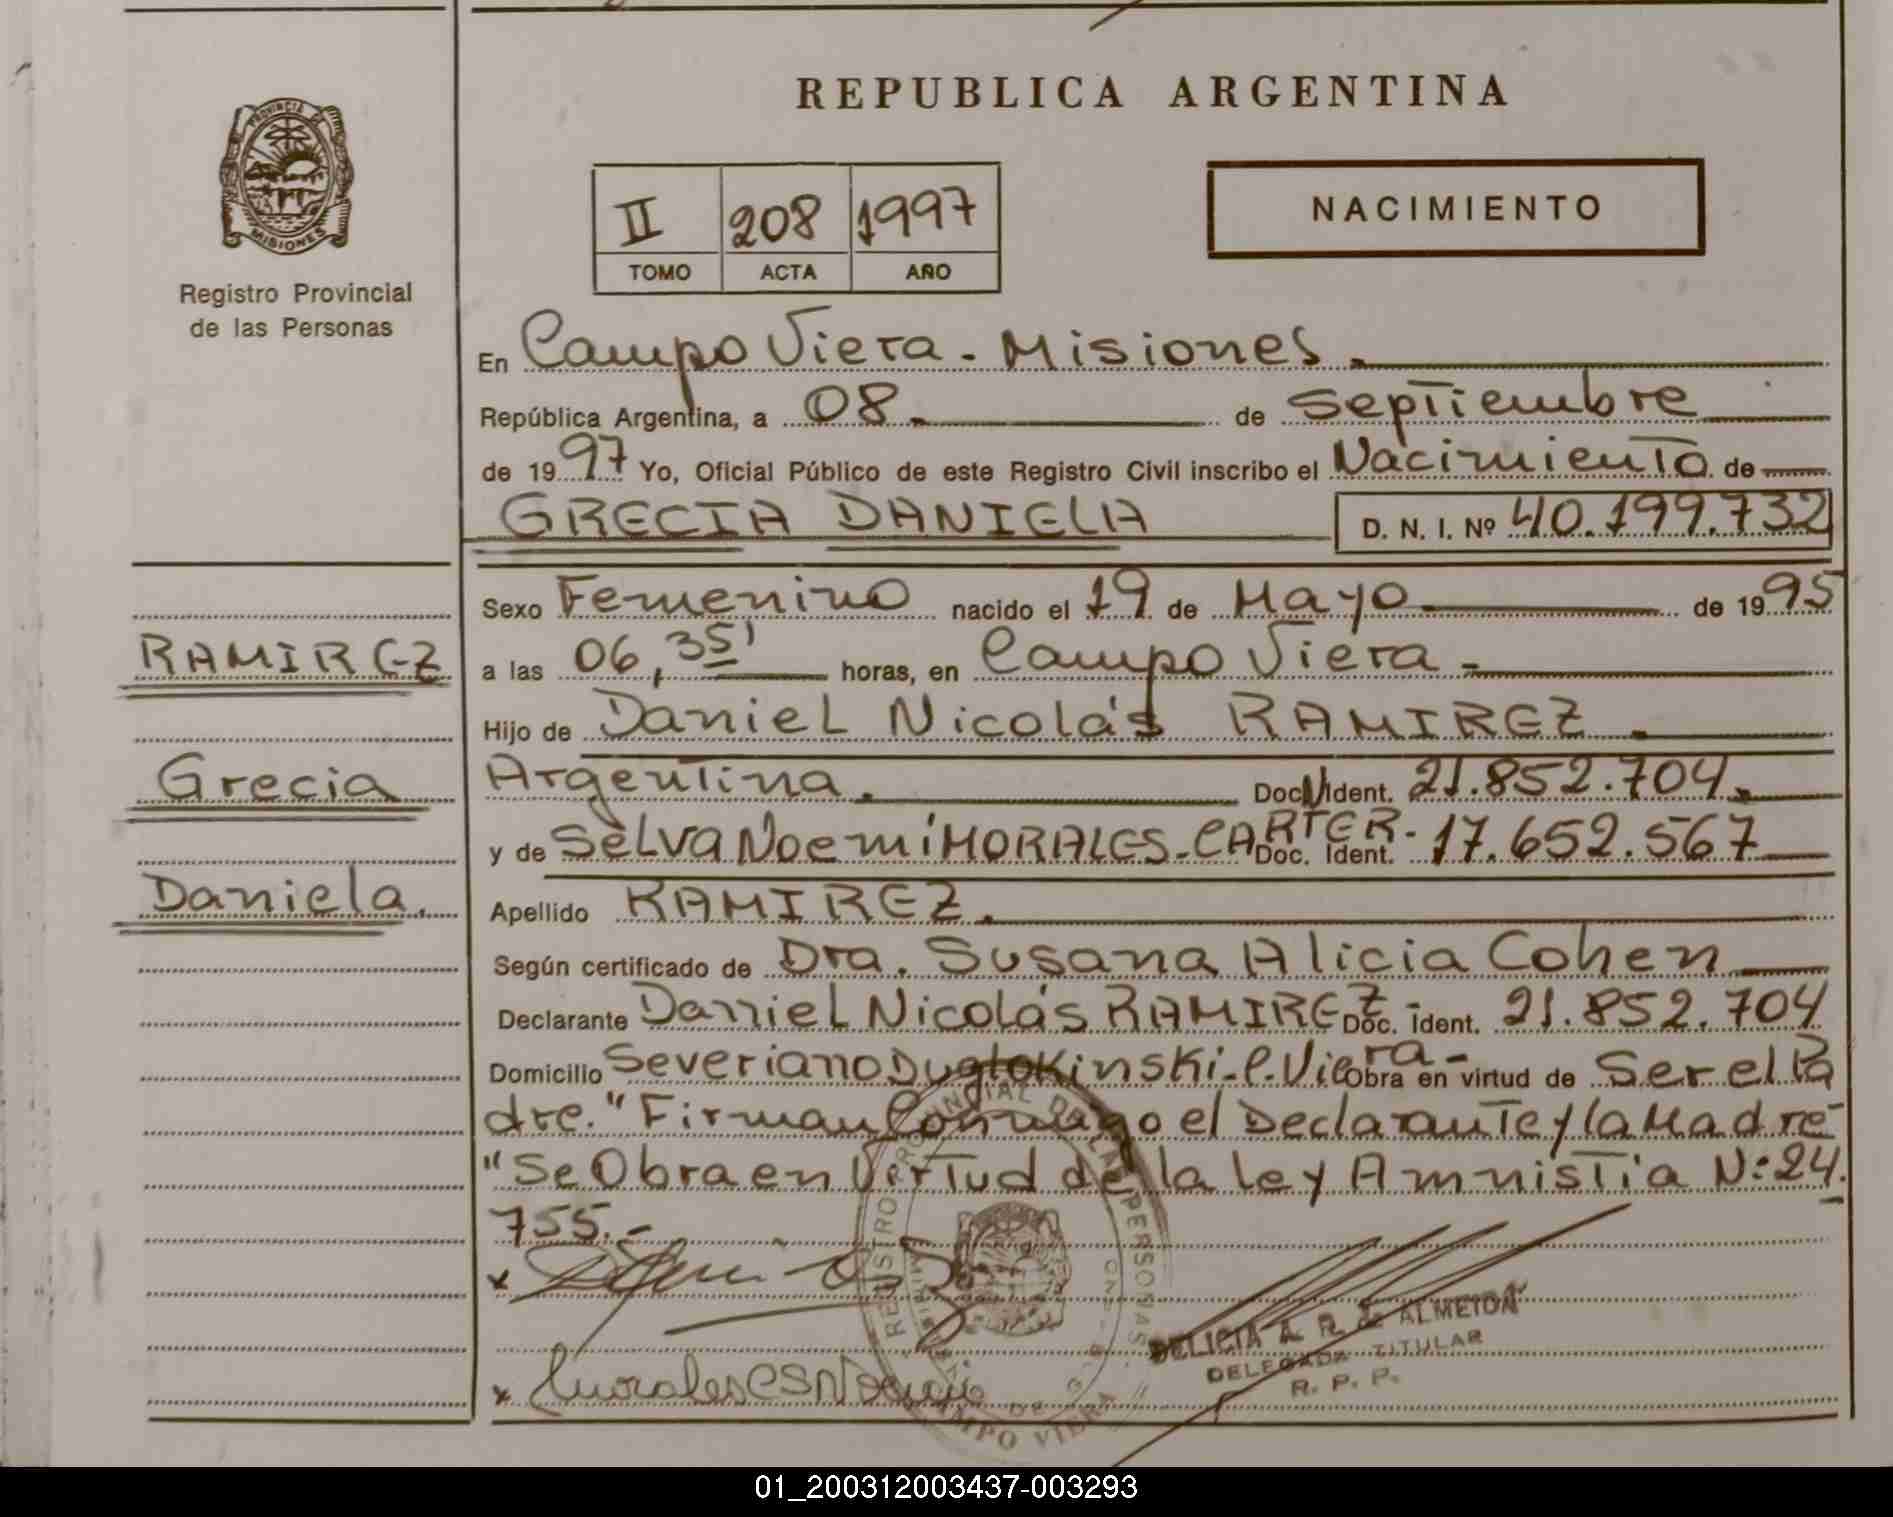 REPUBLICA ARGENTINA
PROVINCIA DE
MISIONES
Registro Provincial
de las Personas
II 208 1997
TOMO ACTA AÑO
NACIMIENTO
En Campo Viera - Misiones.
República Argentina, a 08. de Septiembre
de 1997 Yo, Oficial Público de este Registro Civil inscribo el Nacimiento de
GRECIA DANIELA D. N. I. Nº 40.199.732
Sexo Femenino nacido el 19 de Mayo de 1995
RAMIREZ
a las 06,35' horas, en Campo Viera -
Hijo de Daniel Nicolás RAMIREZ.
Grecia
Argentina. Doc. N Ident. 21.852.704.
y de Selva Noemí MORALES - CARTER - Doc. Ident. 17.652.567
Daniela.
Apellido RAMIREZ.
Según certificado de Dra. Susana Alicia Cohen
Declarante Daniel Nicolás RAMIREZ Doc. Ident. 21.852.704
Domicilio Severiano - C. Viera - Obra en virtud de Ser el Pa
dre." Firman Conmigo el Declarante y la Madre
"Se Obra en Virtud de la Ley Amnistia N: 24.
755.-
x
REGISTRO PROVINCIAL DE LAS PERSONAS
CAMPO VIERA
DELICIA A. R. de ALMEIDA
DELEGADA TITULAR
R. P. P.
x Morales
01_200312003437-003293